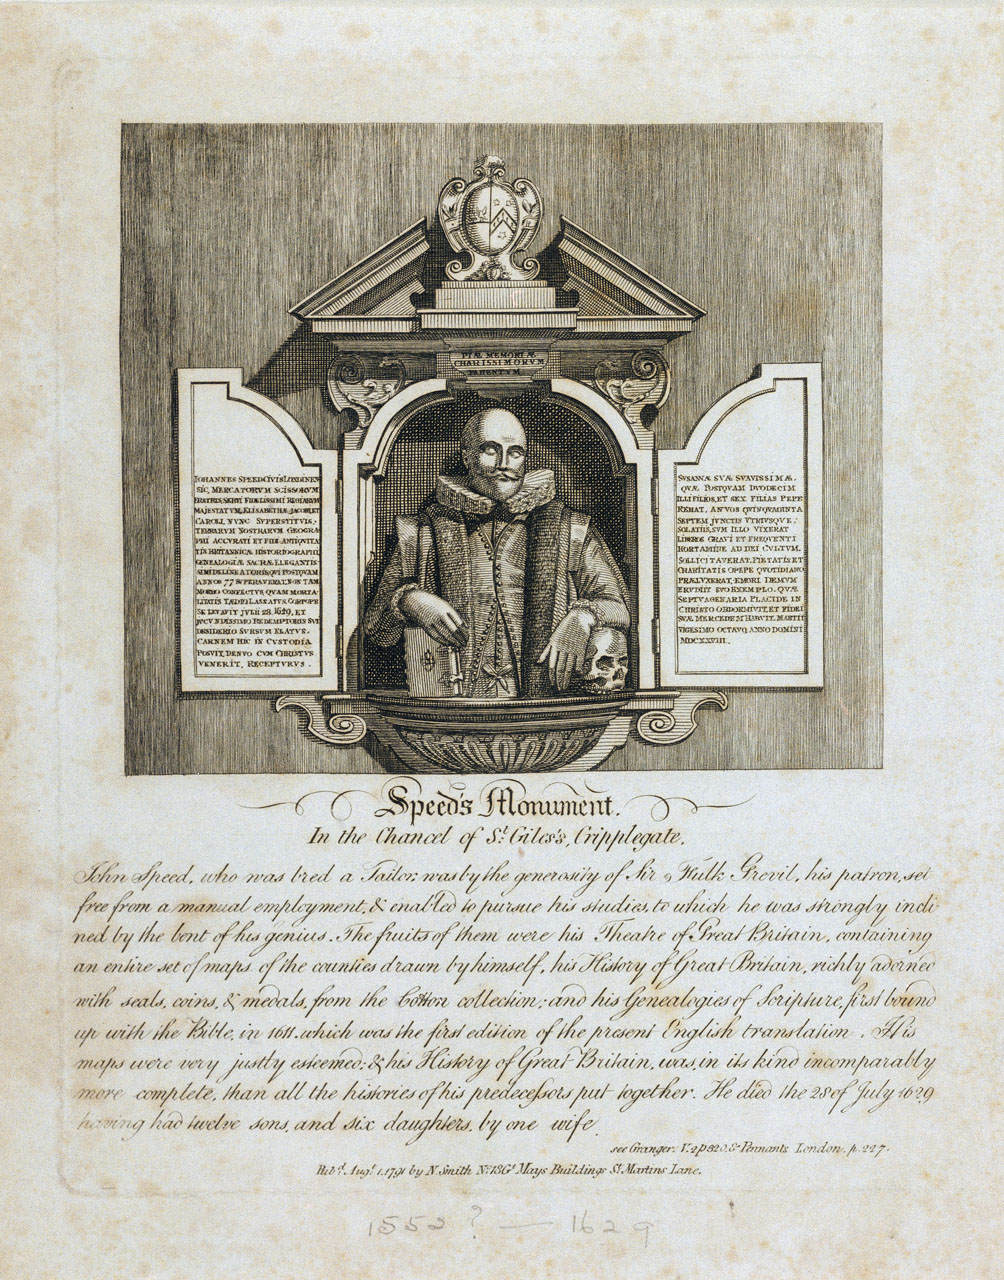 PIÆ MEMORIÆ
CHARISSIMORVM
PARENTVM
IOHANNES SPEED CIVIS LONDINEN
SIC, MERCATORVM SCISSORVM
FRATRIS, SERVI FIDELISSIMI REGIARVM
MAJESTATVM, ELISABETHÆ, JACOBI, ET
CAROLI, NVNC SVPERSTITVIS,
TERRARVM NOSTRARVM GEOGRA
PHI ACCVRATI ET FIDI ANTIQVITA
TIS BRITANNICÆ HISTORIOGRAPHI,
GENEALOGIÆ SACRÆ ELEGANTIS
SIMI DELINEATORIS, QVI POSTQVAM
ANNOS 77 SVPERAVERAT, NON TAM
MORBO CONFECTVS, QVAM MORTA
LITATIS TÆDIO LASSATVS, CORPORE
SE LEVAVIT JVLII 28. 1629, ET
JVCVNDISSIMO REDEMPTORIS SVI
DESIDERIO SVRSVM ELATVS.
CARNEM HIC IN CVSTODIA
POSVIT, DENVO CVM CHRISTVS
VENERIT, RECEPTVRVS.
SVSANNÆ SVÆ SVAVISSIMÆ.
QVÆ POSTQVAM DVODECIM
ILLI FILIOS, ET SEX FILIAS PEPE
RERAT, ANNOS QVINQVAGINTA
SEPTEM JVNCTIS VTRIVSQVE
SOLATIIS, CVM ILLO VIXERAT
LIBEROS GRAVI ET FREQVENTI
HORTAMINE AD DEI CVLTVM,
SOLLICITAVERAT, PIETATIS ET
CHARITATIS OPEPE QVOTIDIANO
PRÆLVXERAT, EMORI DEMVM
ERVDIIT SVO EXEMPLO. QVÆ
SEPTVAGENARIA PLACIDE IN
CHRISTO OBDORMIVIT, ET FIDEI
SVÆ MERCEDEM HABVIT. MARTII
VIGESIMO OCTAVO, ANNO DOMINI
MDCXXVIII.
Speed's Monument.
In the Chancel of St. Giles's, Cripplegate.
John Speed, who was bred a Tailor, was by the generosity of Sir Fulk Grevil, his patron, set
free from a manual employment, & enabled to pursue his studies, to which he was strongly incli
ned by the bent of his genius. The fruits of them were his Theatre of Great Britain, containing
an entire set of maps of the counties drawn by himself, his History of Great Britain, richly adorned
with seals, coins, & medals, from the Cotton collection; and his Genealogies of Scripture, first bound
up with the Bible, in 1611. which was the first edition of the present English translation. His
maps were very justly esteemed; & his History of Great Britain, was, in its kind incomparably
more complete, than all the histories of his predecessors put together. He died the 28 of July 1629
having had twelve sons, and six daughters, by one wife.
see Granger. V. 2 p 320, & Pennants London. p. 227.
Pubd. Augt. 1. 1791 by N. Smith No. 18 Gt. Mays Buildings St. Martins Lane.
1552 ? — 1629